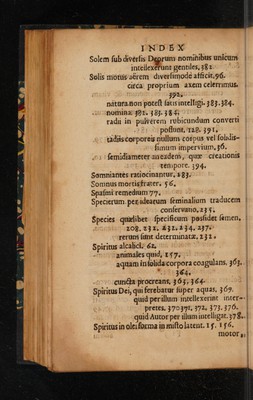 INDEX
Solem sub diversis Deorum nominibus unicum
intellexerunt gentiles, 382.
Solis motus aërem diversimodè afficit, 96.
circa proprium axem celerrimus.
392.
natura non potest satis intelligi. 383. 384.
nomina. 382. 383. 384.
radii in pulverem rubicundum converti
possunt, 128. 391.
radiis corporeis nullum corpus vel solidis-
simum impervium, 36.
semidiameter eadem, quæ creationis
tempore. 394.
Somniantes ratiocinantur. 283.
Somnus mortis frater. 56.
Spasmi remedium 77.
Specierum per ideam seminalium traducem
conservatio, 235.
Species quælibet specificum possidet semen,
208. 231. 232. 234. 237.
rerum sunt determinatæ, 232.
Spiritus alcalici. 62.
animales quid, 157.
aquam in solida corpora coagulans. 363.
364.
cuncta procreans, 363. 364.
Spiritus Dei, qui ferebatur super aquas. 369.
quid per illum intellexerint inter-
pretes, 370. 371. 372. 373. 376.
quid Autor per illum intelligat. 378.
Spiritus in olei forma in misto latent. 15. 156.
motor